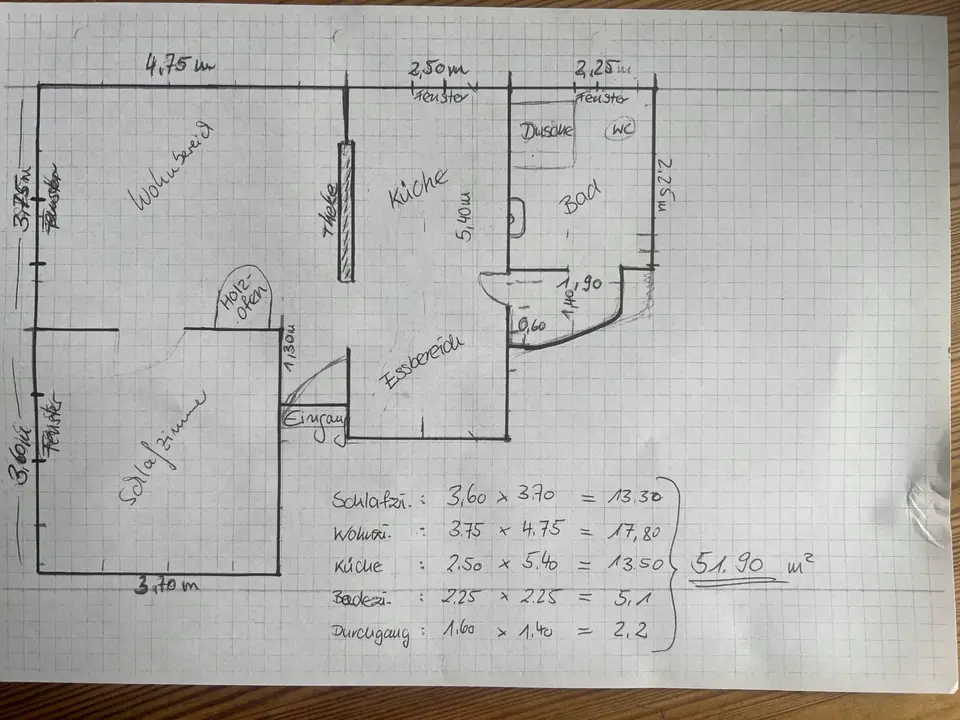 4,75 m
2,50 m
2,25 m
Fenster
Fenster
Dusche
WC
Wohnbereich
3,75 m
Fenster
Theke
Küche
5,40 m
Bad
2,25 m
Holz-
ofen
1,90
1,40
0,60
1,30 m
Essbereich
Eingang
Schlafzimmer
Fenster
3,60 m
3,70 m
Schlafzi. : 3,60 × 3.70 = 13.30
Wohnzi. : 3.75 × 4.75 = 17,80
Küche : 2.50 × 5.40 = 13.50
51.90 m²
Badezi. : 2.25 × 2.25 = 5,1
Durchgang : 1.60 × 1,40 = 2,2